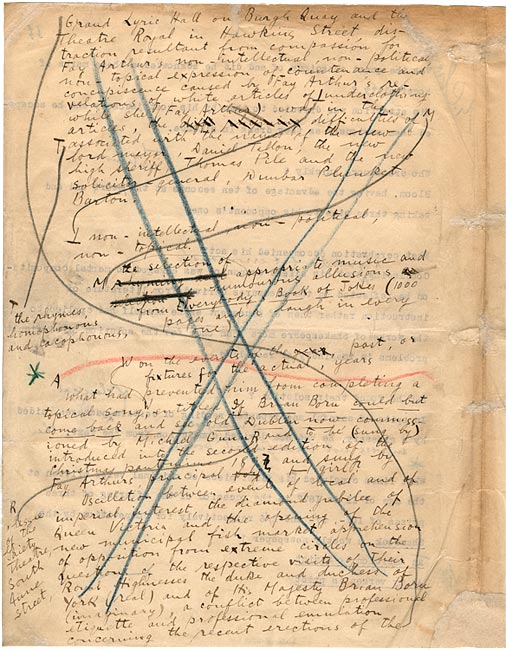 Grand Lyric Hall on Burgh Quay and the
Theatre Royal in Hawkins Street dis-
traction resultant from compassion for
Fay Arthur's non-intellectual, non-political
non-topical expression of countenance and
concupiscence caused by Fay Arthur's re-
velations of white articles of underclothing
while she (Fay Arthur) was in the
articles, the difficulties of
associated with the names of the new
lord mayor, Daniel Tallon, the new
high sheriff, Thomas Pile and the new
solicitor general, Dunbar Plunket
Barton.
I non-intellectual, non-political,
non-topical.
M the selection of appropriate music and
humorous allusions
from Everybody's Book of Jokes (1000
pages and a laugh in every
one)
T the rhymes
homophonous
and cacophonous,
W on the events of the past or
fixtures for the actual, years
A
What had prevented him from completing a
topical song If Brian Boru could but
come back and see old Dublin now commiss-
ioned by Michael Gunn R and to be (sung by)
introduced into the second edition of the
Christmas pantomime and sung by
Fay Arthur principal girl?
Oscillation between events of local and of
imperial interest, the diamond jubilee of
Queen Victoria and the opening of the
new municipal fish market apprehension
of opposition from extreme circles on the
question of the respective visits of Their
Royal Highnesses the duke and duchess of
York (real) and of His Majesty Brian Boru
(imaginary), a conflict between professional
etiquette and professional emulation
concerning the recent erections of the
R
lessee
of the
Gaiety
Theatre,
South
Anne
street